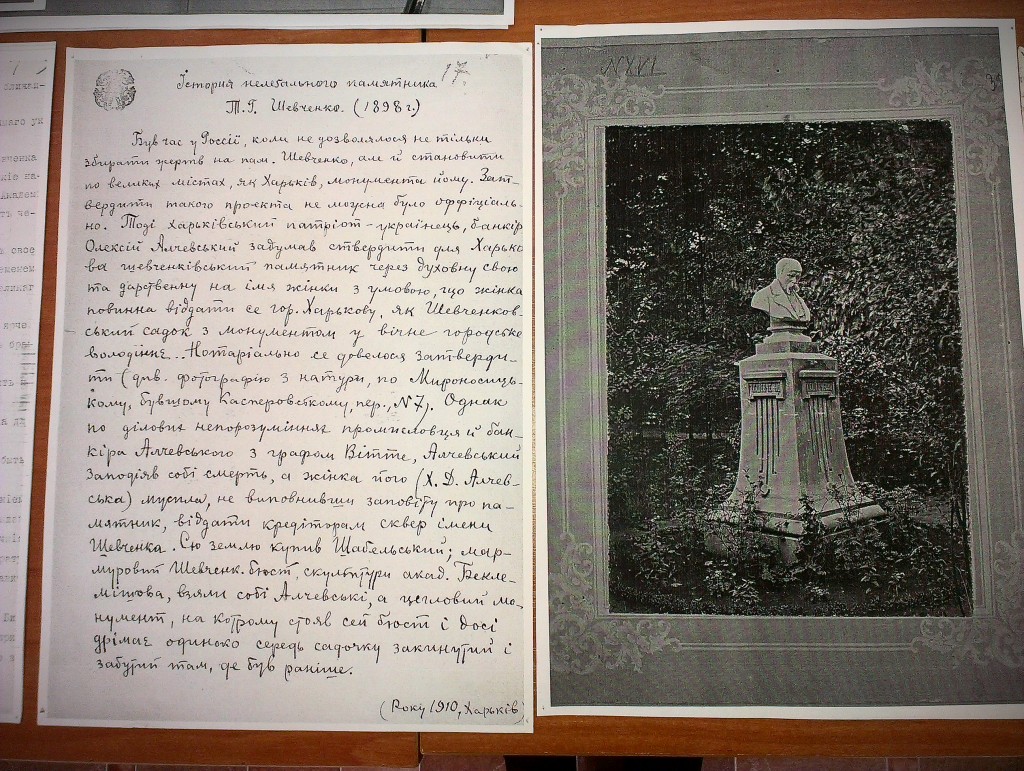 17.
Історія нелегального памятника
Т. Г. Шевченко. (1898 г.)
Був час у Россії, коли не дозволялося не тільки
збирати жертв на пам. Шевченко, але й становити
по великих містах, як Харьків, монумента йому. Зат-
вердити такого проєкта не можна було оффіціаль-
но. Тоді харьківський патріот-українець, банкір
Олексій Алчевський задумав ствердити для Харько
ва шевченківський памятник через духовну свою
та дарственну на імя жінки з умовою, що жінка
повинна віддати се гор. Харькову, як Шевченков-
ський садок з монументом у вічне городське
володіннє... Нотаріально се довелося затверди-
ти (див. фотографію з натури, по Мироносиць-
кому, бувшому Касперовському, пер., N7). Однак
по ділових непорозуміннях промисловця й бан-
кіра Алчевського з графом Вітте, Алчевський
заподіяв собі смерть, а жінка його (Х. Д. Алчев-
ська) мусила, не виповнивши заповіту про па-
мятник, віддати кредіторам сквер імени
Шевченка. Сю землю купив Шабельський; мар-
муровий Шевченк. бюст, скульптури акад. Бекле-
мішова, взяли собі Алчевські, а цегловий мо-
нумент, на котрому стояв сей бюст і досі
дрімає одиноко середь садочку закинутий і
забутий там, де був раніше.
(Року 1910, Харьків)
NXVI